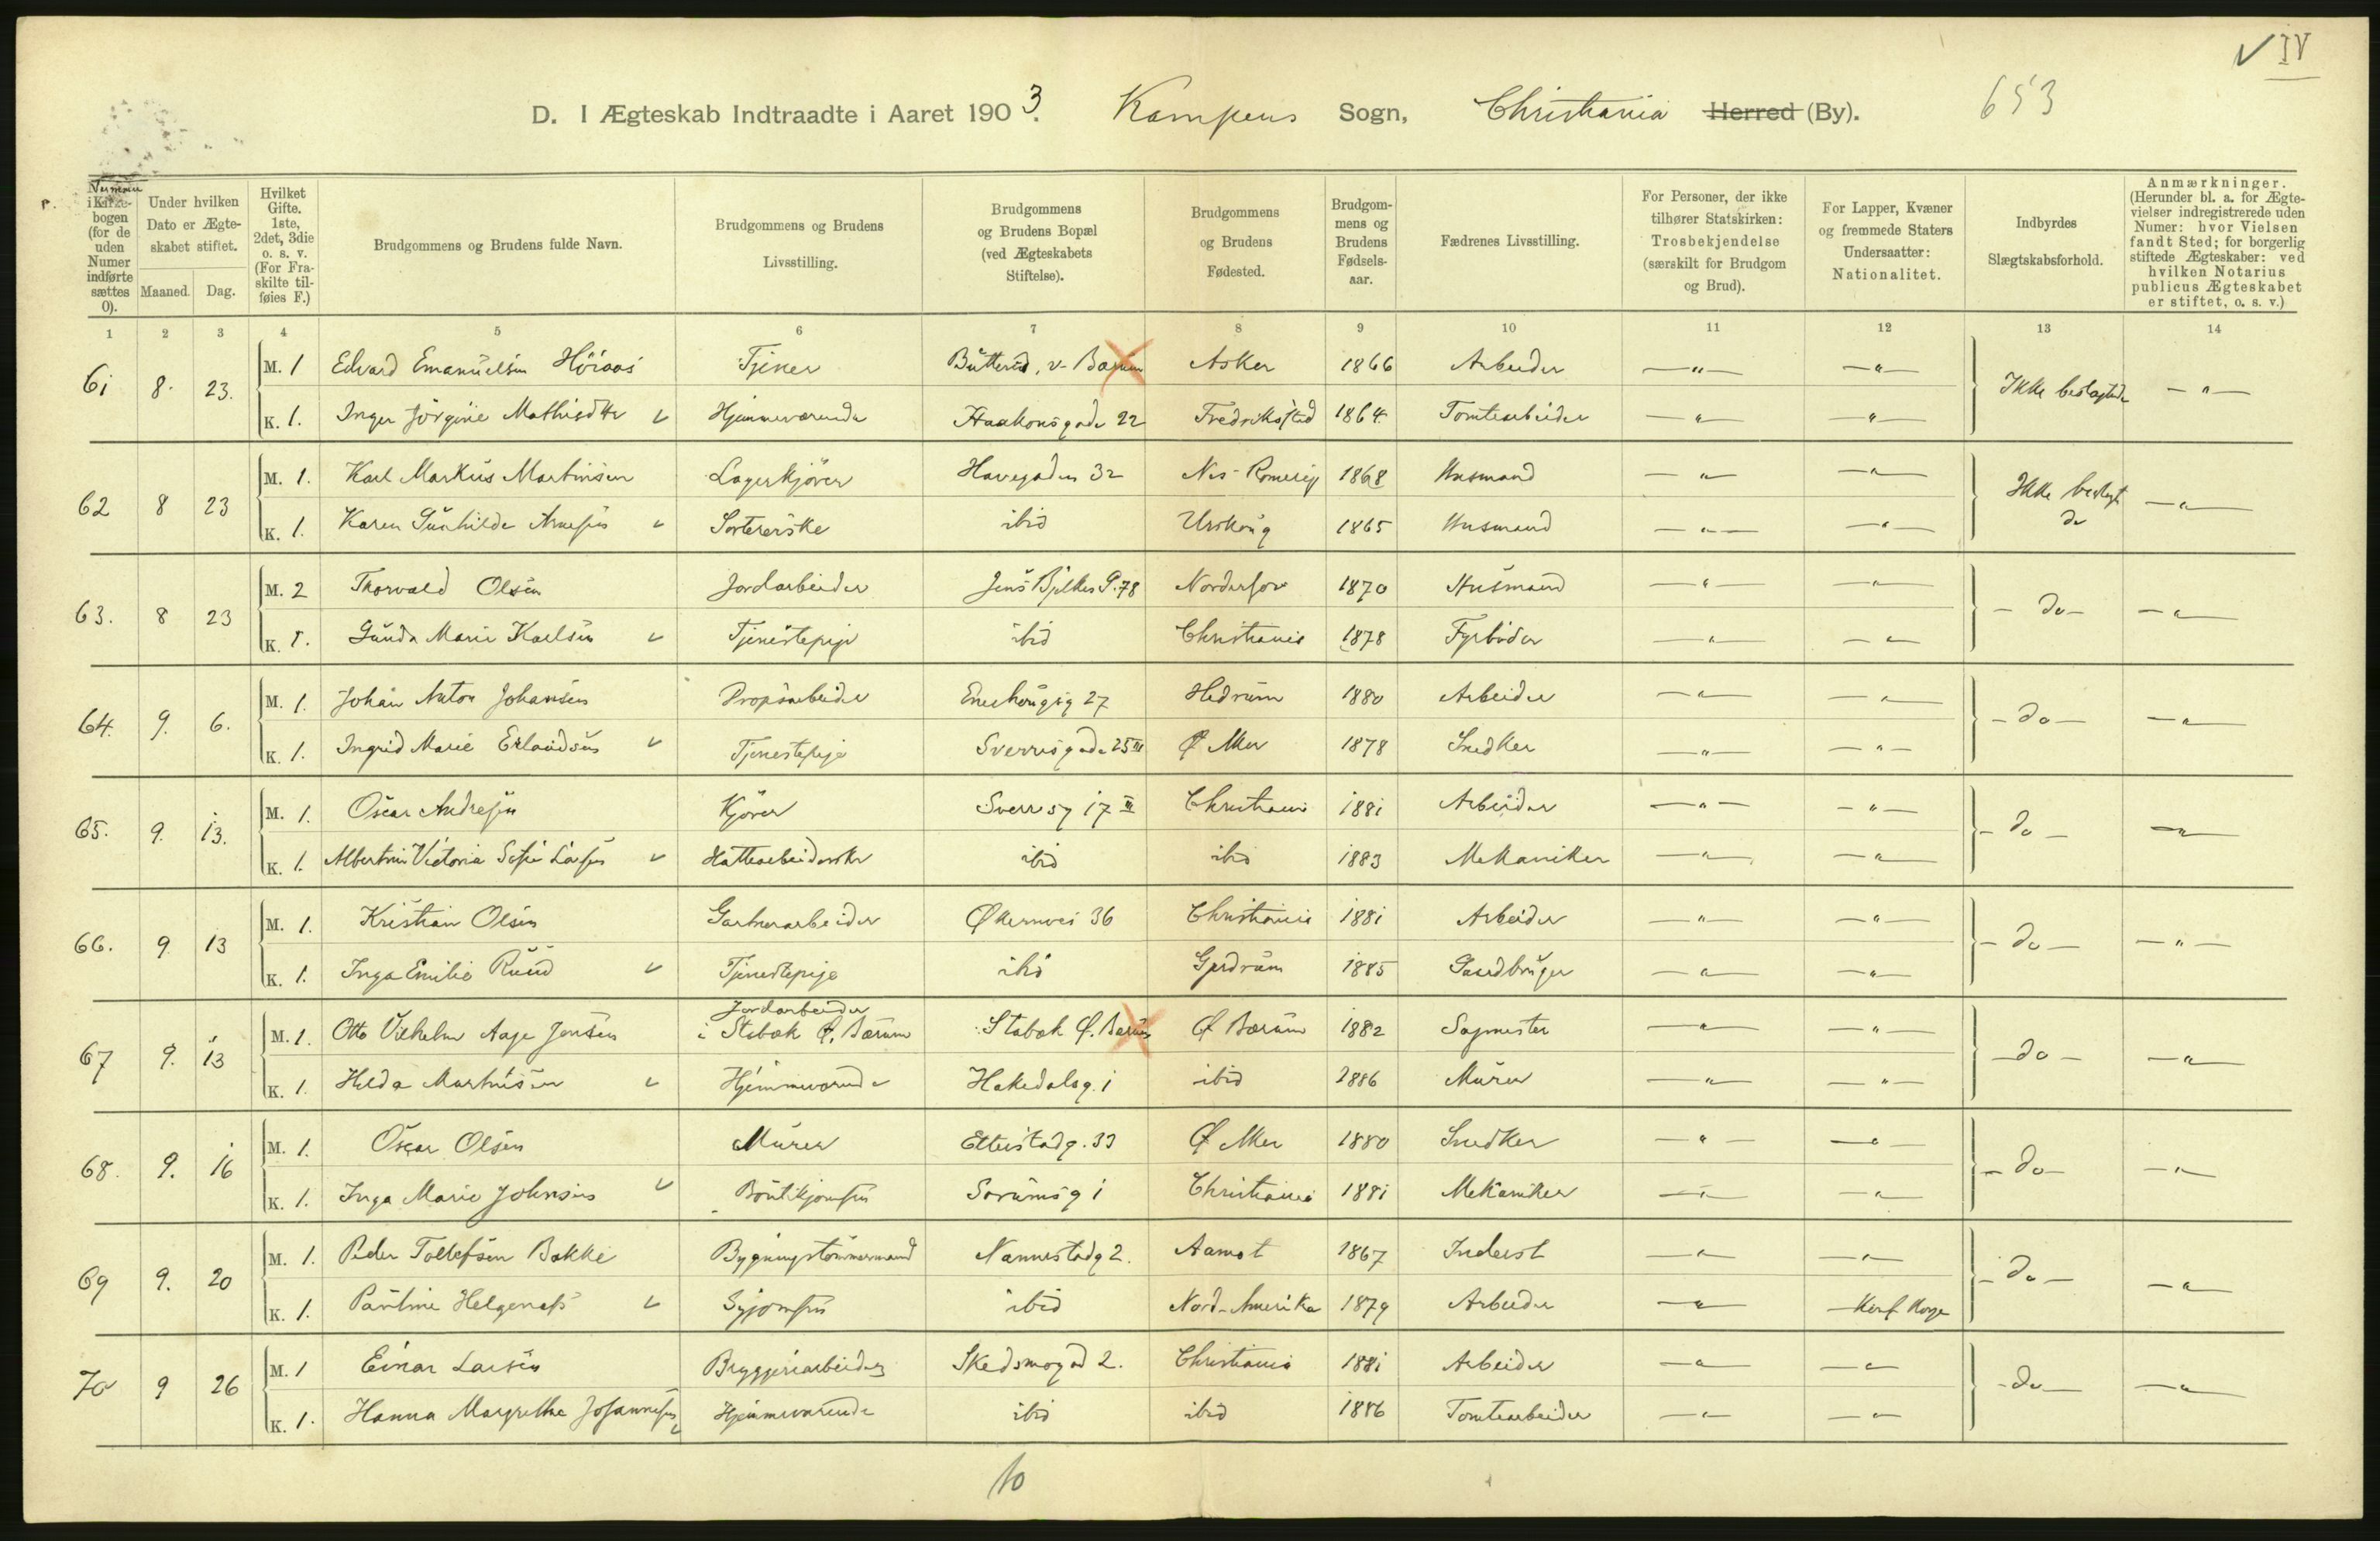 V IV
D. I Ægteskab Indtraadte i Aaret 1903. Kampens Sogn, Christiania Herred (By). 653
Nummer i Kirke-bogen (for de uden Numer indførte sættes 0).
Under hvilken Dato er Ægte-skabet stiftet.
Maaned. Dag.
Hvilket Gifte. 1ste, 2det, 3die o. s. v. (For Fra-skilte til-føies F.)
Brudgommens og Brudens fulde Navn.
Brudgommens og Brudens Livsstilling.
Brudgommens og Brudens Bopæl (ved Ægteskabets Stiftelse).
Brudgommens og Brudens Fødested.
Brudgom-mens og Brudens Fødsels-aar.
Fædrenes Livsstilling.
For Personer, der ikke tilhører Statskirken: Trosbekjendelse (særskilt for Brudgom og Brud).
For Lapper, Kvæner og fremmede Staters Undersaatter: Nationalitet.
Indbyrdes Slægtskabsforhold.
Anmærkninger. (Herunder bl. a. for Ægte-vielser indregistrerede uden Numer: hvor Vielsen fandt Sted; for borgerlig stiftede Ægteskaber: ved hvilken Notarius publicus Ægteskabet er stiftet, o. s. v.)
1 2 3 4 5 6 7 8 9 10 11 12 13 14
61 8. 23. M. 1 Edvard Emanuelsen Tjener v. Bærum Asker 1866 Arbeider —"— —"— Ikke beslægtede —"—
K. 1. Inger Jörgine Mathisdtr Hjemmeværende Haakonsgade 22 Fredrikstad 1864 Tomtearbeider —"— —"—
62 8 23 M. 1. Karl Markus Martinsen Lagerkjörer Havegaden 32 Nes Romerig 1868 Husmand —"— —"— Ikke beslægtede —"—
K. 1. Karen Gunhilde Arnesen Sortererske ibid Urskoug 1865 Husmand —"— —"—
63. 8 23 M. 2 Thorvald Olsen Jordarbeider Jens Bjelkes G. 78 Nordrehov 1870 Husmand —"— —"— — do — —"—
K. 1. Gunda Marie Karlsen Tjenestepige ibid Christiania 1878 Fyrböder —"— —"—
64. 9. 6. M. 1. Johan Anton Johansen Enebakg 27 Hedrum 1880 Arbeider —"— —"— — do — —"—
K. 1. Ingrid Marie Erlandsen Tjenestepige Sverresgade 25 III Ø Aker 1878 Snedker —"— —"—
65. 9. 13. M. 1. Oscar Andresen Kjörer Sverresg 17 III Christiania 1881 Arbeider —"— —"— — do — —"—
K. 1. Albertine Victoria Sofie Larsen Hattearbeiderske ibid ibid 1883 Mekaniker —"— —"—
66. 9. 13 M. 1. Kristian Olsen Gartnerarbeider Økernvei 36 Christiania 1881 Arbeider —"— —"— — do — —"—
K. 1. Inga Emilie Ruud Tjenestepige ibid Gjerdrum 1885 Gaardbruger —"— —"—
67 9. 13 M. 1. Otto Vilhelm Aage Jensen Jordarbeider i Stabæk Ø. Bærum Stabæk Ø. Bærum Ø Bærum 1882 Sagmester —"— —"— — do — —"—
K. 1. Hilda Martinsen Hjemmeværende Hakedalsg. 1 ibid 1886 Murer —"— —"—
68. 9. 16 M. 1. Oscar Olsen Murer Etterstadg. 33 Ø Aker 1880 Snedker —"— —"— — do — —"—
K. 1. Inga Marie Johnsen Butikjomfru Sörumsg 1 Christiania 1881 Mekaniker —"— —"—
69 9. 20 M. 1. Peder Tollefsen Bakke Bygningstömmermand Nannestadg 2. Aamot 1867 Inderst —"— —"— — do — —"—
K. 1. Pauline Helgenæs Syjomfru ibid Nord-Amerika 1879 Arbeider —"—
70 9 26 M. 1 Einar Larsen Bryggeriarbeider Skedsmogd 2. Christiania 1881 Arbeider —"— —"— — do — —"—
K. 1. Hanna Margrethe Johannesen Hjemmeværende ibid ibid 1886 Tomtearbeider —"— —"—
10